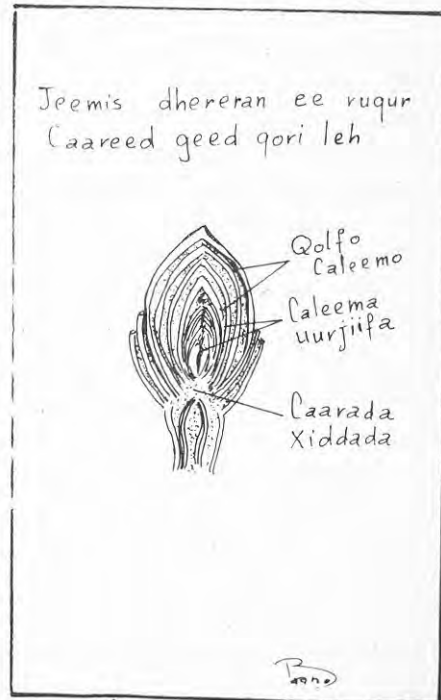 Jeemis dhereran ee ruqur
Caareed geed qori leh
Qolfo
Caleemo
Caleema
uurjiifa
Caarada
Xiddada